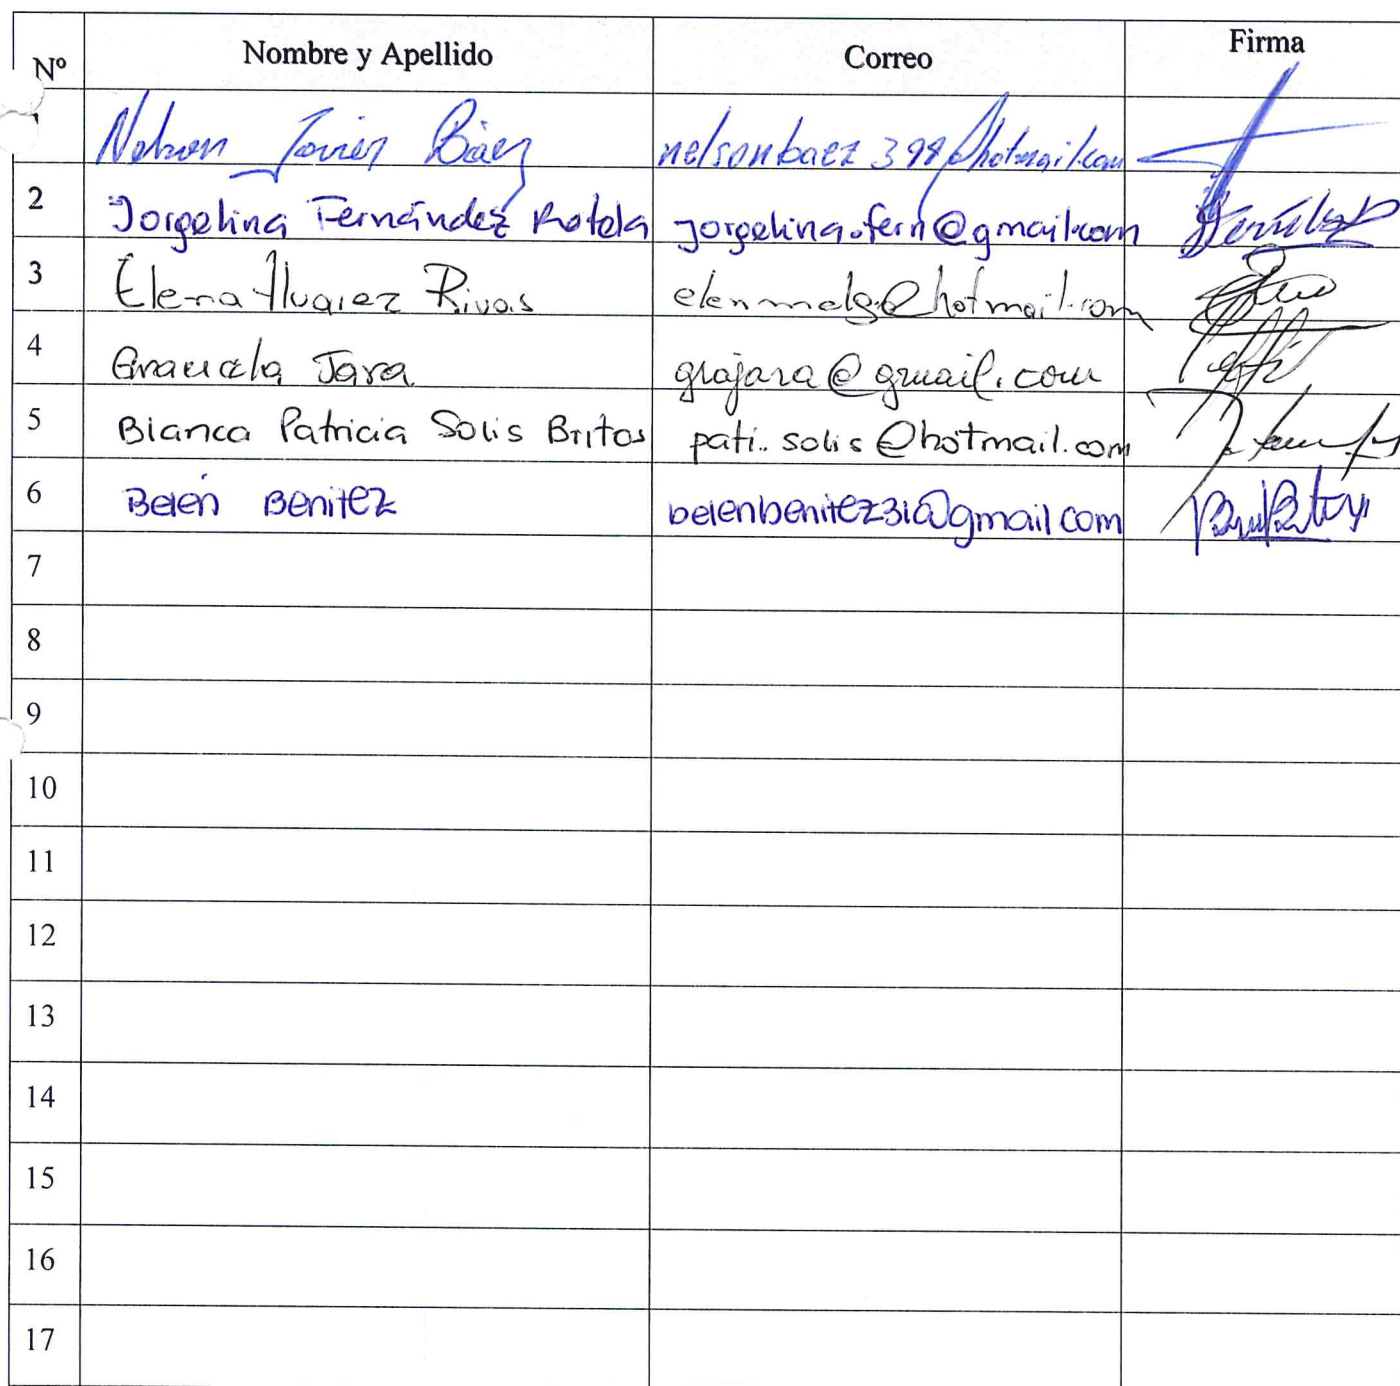 Nº Nombre y Apellido Correo Firma
1 Nelson Javier Báez nelsonbaez398@hotmail.com
2 Jorgelina Fernández Rotela jorgelina.fern@gmail.com
3 Elena Alvarez Rivas @hotmail.com
4 Graciela Jara grajara@gmail.com
5 Bianca Patricia Solis Britos pati..solis@hotmail.com
6 Belén Benitez belenbenitez31@gmail.com
7
8
9
10
11
12
13
14
15
16
17